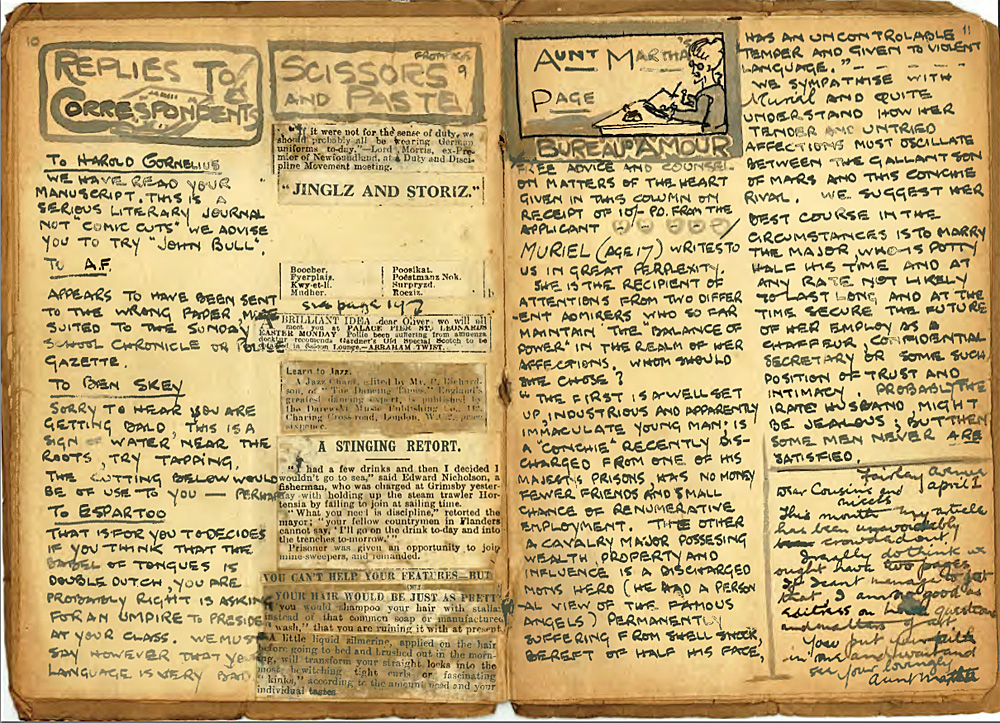 10
REPLIES TO
CORRESPONDENTS
TO HAROLD CORNELIUS
WE HAVE READ YOUR
MANUSCRIPT. THIS IS A
SERIOUS LITERARY JOURNAL
NOT "COMIC CUTS" WE ADVISE
YOU TO TRY "JOHN BULL".
TO A.F.
APPEARS TO HAVE BEEN SENT
TO THE WRONG PAPER, MORE
SUITED TO THE SUNDAY
SCHOOL CHRONICLE OR POLICE
GAZETTE.
TO BEN SKEY
SORRY TO HEAR YOU ARE
GETTING BALD, THIS IS A
SIGN OF WATER NEAR THE
ROOTS, TRY TAPPING,
THE CUTTING BELOW WOULD
BE OF USE TO YOU — PERHAPS
TO ESPARTOO
THAT IS FOR YOU TO DECIDES
IF YOU THINK THAT THE
BABEL OF TONGUES IS
DOUBLE DUTCH, YOU ARE
PROBABLY RIGHT IS ASKING
FOR AN UMPIRE TO PRESIDE
AT YOUR CLASS. WE MUST
SAY HOWEVER THAT YOUR
LANGUAGE IS VERY BAD
FROM
9
SCISSORS
AND PASTE
"If it were not for the sense of duty, we
should probably all be wearing German
uniforms to-day."—Lord Morris, ex-Pre-
mier of Newfoundland, at a Duty and Disci-
pline Movement meeting.
"JINGLZ AND STORIZ."
Boocher. Poosikat.
Fyerplais. Poestmanz Nok.
Kwy-et-li. Surpryzd.
Mudher. Roexit.
see page
BRILLIANT IDEA, dear Oliver, we will all
meet you at PALACE PIER ST. LEONARDS
EASTER MONDAY Pollie been suffering from
docktur recomends Gardner's Old Special Scotch to be
in Saloon Lounge.—ABRAHAM TWIST.
Learn to Jazz.
A Jazz Chart, edited by Mr. P. Richard-
son, of "The Dancing Times," England's
greatest dancing expert, is published by
the Darewski Music Publishing Co.,
Charing Cross-road, London, W.C.2, price
sixpence.
A STINGING RETORT.
"I had a few drinks and then I decided I
wouldn't go to sea," said Edward Nicholson, a
fisherman, who was charged at Grimsby yester-
day with holding up the steam trawler Hor-
tensia by failing to join at sailing time.
"What you need is discipline," retorted the
mayor; "your fellow countrymen in Flanders
cannot say, 'I'll go on the drink to-day and into
the trenches to-morrow.'"
Prisoner was given an opportunity to join
mine-sweepers, and remanded.
YOU CAN'T HELP YOUR FEATURES—BUT
YOUR HAIR WOULD BE JUST AS PRETTY
you would shampoo your hair with stallax
instead of that common soap or manufactured
"wash," that you are ruining it with at present
A little liquid silmerine, applied on the hair
before going to bed and brushed out in the morn-
ing, will transform your straight locks into the
most bewitching tight curls or fascinating
"kinks," according to the amount used and your
individual tastes
AUNT MARTHA'S
PAGE
BUREAU D'AMOUR
FREE ADVICE AND COUNSEL
ON MATTERS OF THE HEART
GIVEN IN THIS COLUMN ON
RECEIPT OF 10/- P.O. FROM THE
APPLICANT
MURIEL (AGE 17) WRITES TO
US IN GREAT PERPLEXITY.
SHE IS THE RECIPIENT OF
ATTENTIONS FROM TWO DIFFER
-ENT ADMIRERS WHO SO FAR
MAINTAIN THE "BALANCE OF
POWER" IN THE REALM OF HER
AFFECTIONS. WHOM SHOULD
SHE CHOSE?
"THE FIRST IS A WELL SET
UP, INDUSTRIOUS AND APPARENTLY
IMMACULATE YOUNG MAN; IS
A "CONCHIE" RECENTLY DIS-
CHARGED FROM ONE OF HIS
MAJESTY'S PRISONS, HAS NO MONEY
FEWER FRIENDS AND SMALL
CHANCE OF RENUMERATIVE
EMPLOYMENT. THE OTHER
A CAVALRY MAJOR POSSESING
WEALTH, PROPERTY AND
INFLUENCE IS A DISCHARGED
MONS HERO (HE HAD A PERSON
-AL VIEW OF THE FAMOUS
ANGELS) PERMANENTLY
SUFFERING FROM SHELL SHOCK,
BEREFT OF HALF HIS FACE,
11
HAS AN UNCONTROLABLE
TEMPER AND GIVEN TO VIOLENT
LANGUAGE." - - - - - -
WE SYMPATHISE WITH
Muriel AND QUITE
UNDERSTAND HOW HER
TENDER AND UNTRIED
AFFECTIONS MUST OSCILLATE
BETWEEN THE GALLANT SON
OF MARS AND THIS CONCHIE
RIVAL. WE SUGGEST HER
BEST COURSE IN THE
CIRCUMSTANCES IS TO MARRY
THE MAJOR, WHO IS POTTY
HALF HIS TIME AND AT
ANY RATE NOT LIKELY
TO LAST LONG AND AT THE
TIME SECURE THE FUTURE
OF HER EMPLOY AS A
CHAFFEUR, CONFIDENTIAL
SECRETARY OR SOME SUCH
POSITION OF TRUST AND
INTIMACY. PROBABLY THE
IRATE HUSBAND, MIGHT
BE JEALOUS; BUT THEN
SOME MEN NEVER ARE
SATISFIED.
April 1
Dear Cousins and
nieces
This month my article
has been unavoidably
crowded out.
I really do think we
ought have two pages
If I cant manage to get
that, I am no good as
editress on questions
and matters of art.
Your
in
see your lovingly
Aunt Martha